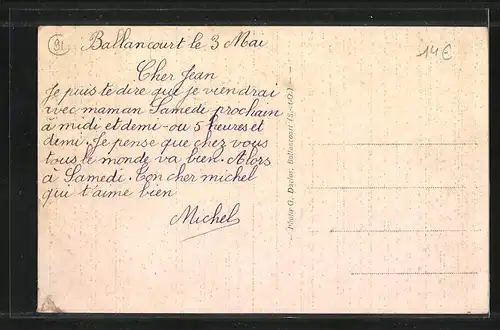 91
Ballancourt le 3 Mai
14€
Cher Jean
Je puis te dire que je viendrai
avec maman Samedi prochain
à midi et demi - ou 5 heures et
demi. Je pense que chez vous
tous le monde va bien. Alors
à Samedi. Ton cher michel
qui t'aime bien
Michel
Photo G. Darlot, Ballancourt (S.-&-O.)